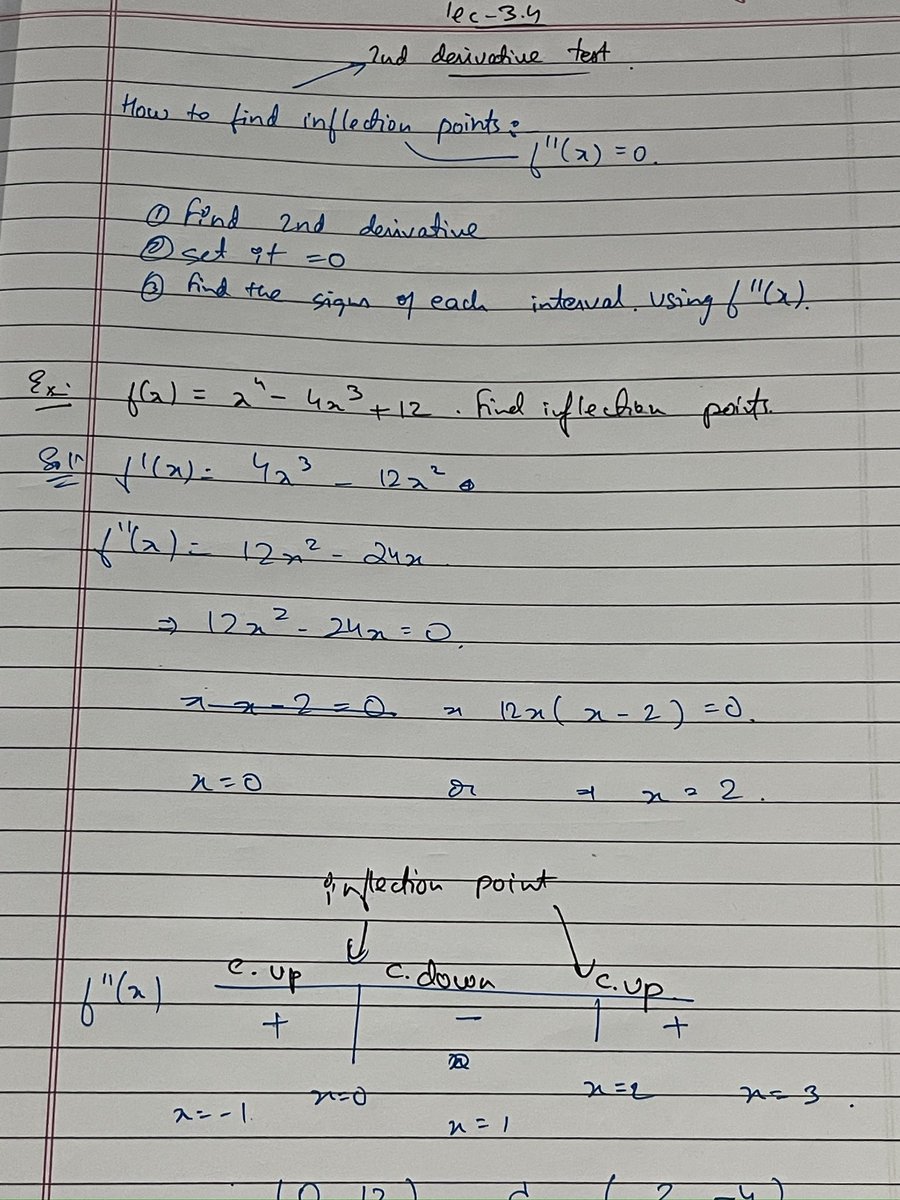 lec-3.4
2nd derivative test.
How to find inflection points:
f''(x) = 0.
① Find 2nd derivative
② set it = 0
③ find the signs of each interval. using f''(x).
Ex: f(x) = x⁴ - 4x³ + 12. Find inflection points.
Solⁿ f'(x) = 4x³ - 12x²
f''(x) = 12x² - 24x
⇒ 12x² - 24x = 0.
x - x - 2 = 0. 12x(x - 2) = 0.
x = 0 or ⇒ x = 2.
inflection point
c. up c. down c. up
f''(x) + - +
x = 0 x = 2 x = 3.
x = -1. x = 1
(0, 12) (2, -4)